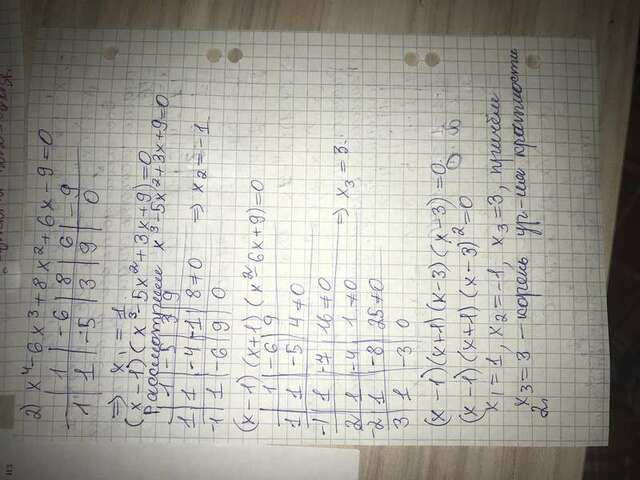 2) x⁴-6x³+8x²+6x-9=0
1 -6 8 6 -9
1 1 -5 3 9 0
⇒ x₁ = 1
(x-1)(x³-5x²+3x+9)=0
Рассмотрим x³-5x²+3x+9=0
1 -5 3 9
1 1 -4 -1 8≠0 ⇒ x₂=-1
-1 1 -6 9 0
(x-1)(x+1)(x²-6x+9)=0
1 -6 9
1 1 -5 4≠0
-1 1 -7 16≠0
2 1 -4 1≠0 ⇒ x₃=3.
-2 1 -8 25≠0
3 1 -3 0
(x-1)(x+1)(x-3)(x-3)=0
(x-1)(x+1)(x-3)²=0
x₁=1, x₂=-1, x₃=3, причём
x₃=3 – корень ур-ия кратности
2.